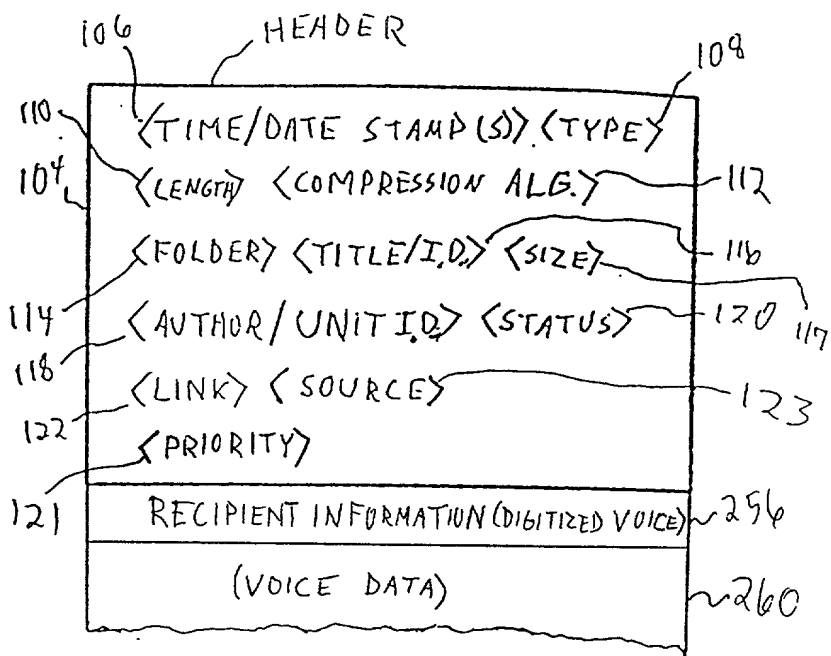 106 HEADER 108
110 <TIME/DATE STAMP(S)> <TYPE>
104 <LENGTH> <COMPRESSION ALG.> 112
<FOLDER> <TITLE/I.D.> <SIZE> 116
114 <AUTHOR/UNIT I.D.> <STATUS> 120 117
118
<LINK> <SOURCE> 123
122
<PRIORITY>
121
RECIPIENT INFORMATION (DIGITIZED VOICE) 256
(VOICE DATA) 260